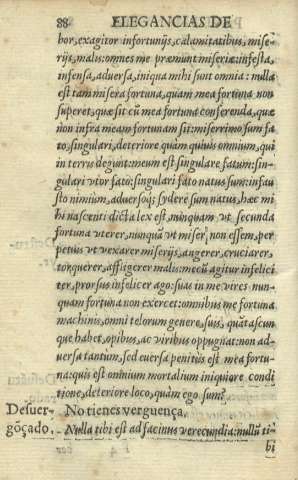 88 ELEGANCIAS DE
bor, exagitor infortunijs, calamitatibus, mise-
rijs, malis: omnes me præmunt miseriæ: infesta,
infensa, aduersa, iniqua mihi sunt omnia: nulla
est tam misera fortuna, quam mea fortuna non
superet, quæ sit cũ mea fortuna conferenda, quæ
non infra meam fortunam sit: miserrimo sum fa
to, singulari, deteriore quàm quiuis omnium, qui
in terris degunt: meum est singulare fatum: sin-
gulari vtor fato: singulari fato natus sum: infau
sto nimium, aduersoq; sydere sum natus, hæc mi
hi nascenti dicta lex est, nunquam vt secunda
fortuna vterer, nunquã vt miser non essem, per
petuò vt vexarer miserijs, angerer, cruciarer,
torquerer, affligerer malis: mecũ agitur infelici
ter, prorsus infeliciter ago: suas in me vires nun-
quam fortuna non exercet: omnibus me fortuna
machinis, omni telorum genere, suis, quãtascun
que habet, opibus, ac viribus oppugnat: non ad-
uersa tantum, sed euersa penitùs est mea fortu-
na: quis est omnium mortalium iniquiore condi
tione, deteriore loco, quàm ego sum?
Desuer- No tienes verguença.
gõçado. Nulla tibi est ad facinus verecundia: nullũ ti-
bi